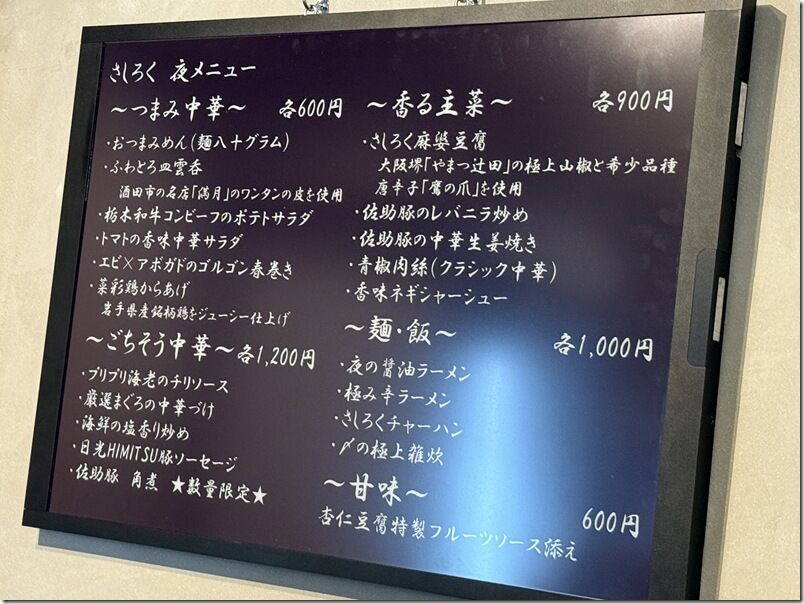 さしろく 夜メニュー
～つまみ中華～ 各600円
・おつまみめん(麺八十グラム)
・ふわとろ皿雲呑
酒田市の名店「満月」のワンタンの皮を使用
・栃木和牛コンビーフのポテトサラダ
・トマトの香味中華サラダ
・エビ×アボガドのゴルゴン春巻き
・菜彩鶏からあげ
岩手県産銘柄鶏をジューシー仕上げ
～ごちそう中華～各1,200円
・プリプリ海老のチリソース
・厳選まぐろの中華づけ
・海鮮の塩香り炒め
・日光HIMITSU豚ソーセージ
・佐助豚 角煮 ★数量限定★
～香る主菜～ 各900円
・さしろく麻婆豆腐
大阪堺「やまつ辻田」の極上山椒と希少品種
唐辛子「鷹の爪」を使用
・佐助豚のレバニラ炒め
・佐助豚の中華生姜焼き
・青椒肉絲(クラシック中華)
・香味ネギチャーシュー
～麺・飯～ 各1,000円
・夜の醤油ラーメン
・極み辛ラーメン
・さしろくチャーハン
・〆の極上雑炊
～甘味～ 600円
杏仁豆腐特製フルーツソース添え